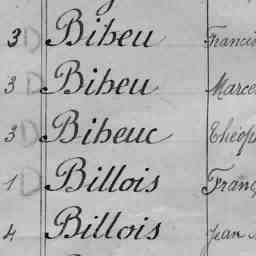 3 D Biheu Francis
3 D Biheu Marce
3 D Biheuc Théop
1 D Billois Franç
4 Billois Jean